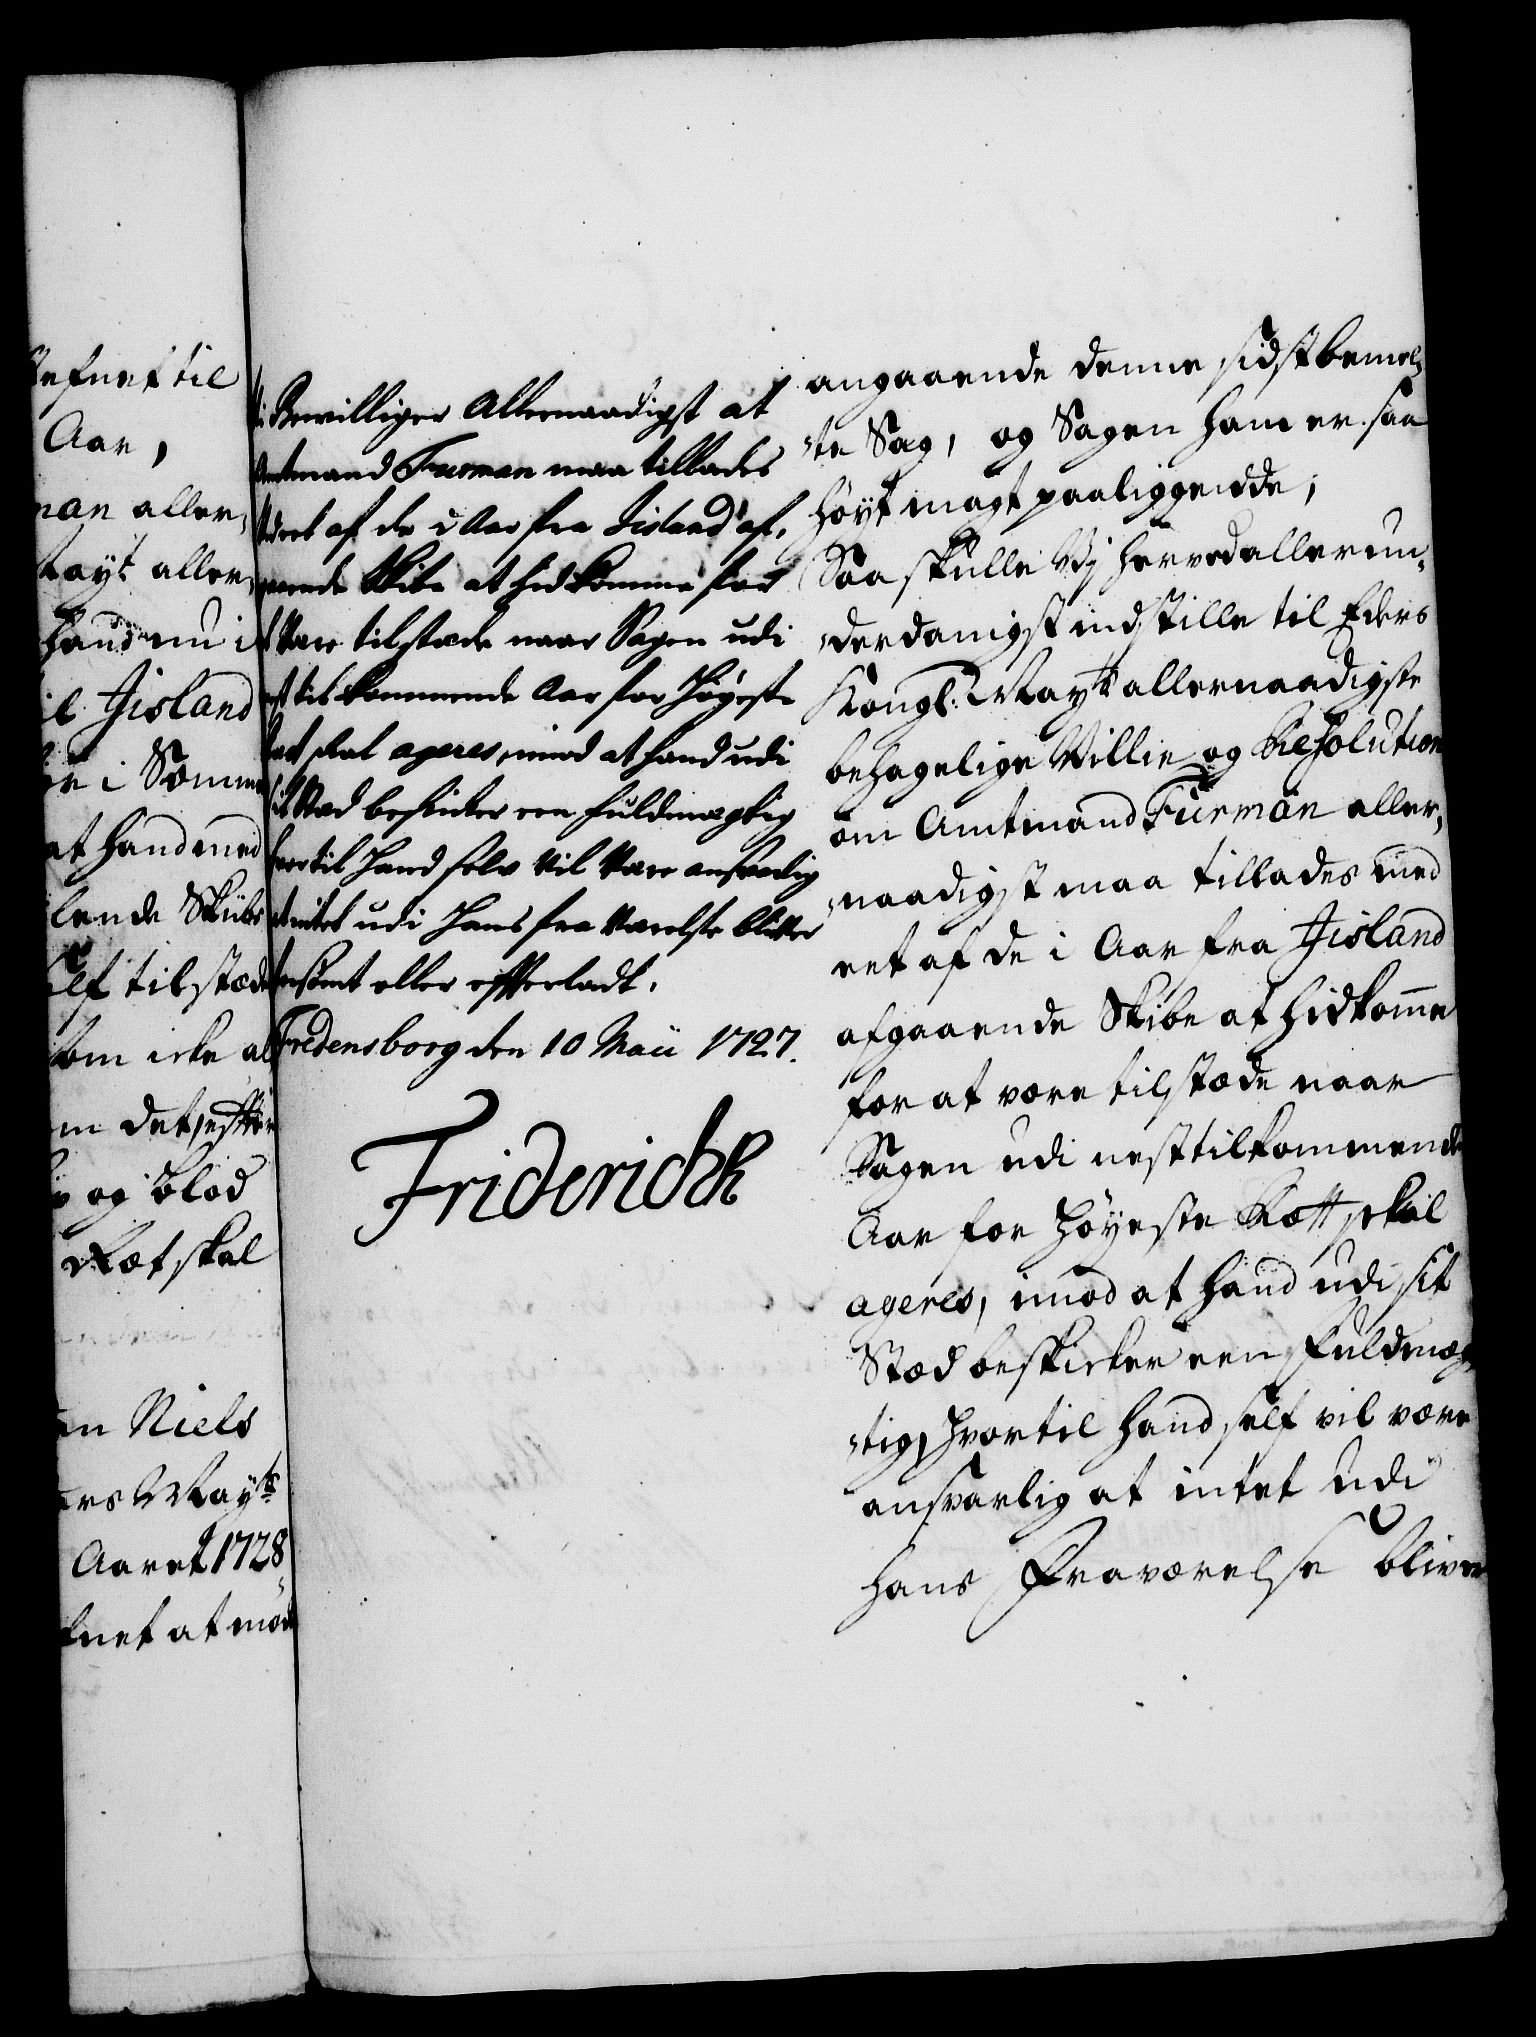 efnet til
Aar,
man aller,
Mayt aller,
hand nu i
til Jisland
i Somme
at hand med
lende Skibe
self tilstæde
som icke al
det, efter
og Blod
Ræt skal
Niels
Mayts
Aaret 1728
at møde
Vi Bewilliger Allernaadigst at
Amtmand Furman maa tillades
Medret af de i Aar fra Jisland af,
gaaende Skibe at hid komme for
at være tilstæde naar Sagen udi
nest tilkommende Aar for Høyeste
Rett skal ageres, imod at hand udi
sit Stæd beskicker een fuldmægtig
hvortil Hand self vil være ansvarlig
at intet udi Hans fra værelse bliver
forsømt eller efterladt.
Fredensborg den 10 Maii 1727.
Friderich R
angaaende denne sidstbemel,
,,te Sag, og Sagen ham er saa
høyt magt paaliggendde;
Saa skulle Vi herved allerun,
,,derdanigst indstille til Eders
Kongl: Mayts allernaadigste
behagelige Villie og Resolution
om Amtmand Furman aller,
,,naadigst maa tillades med
eet af de i Aar fra Jisland
afgaaende Skibe at hidkomme
for at være tilstæde naar
Sagen udi nesttilkommende
Aar for Høyeste Rætt skal
ageres, imod at hand udi sit
Stæd beskicker een Fuldmæg,
,,tig, hvortil hand self vil være
ansvarlig at intet udi
hans Fraværelse bliver